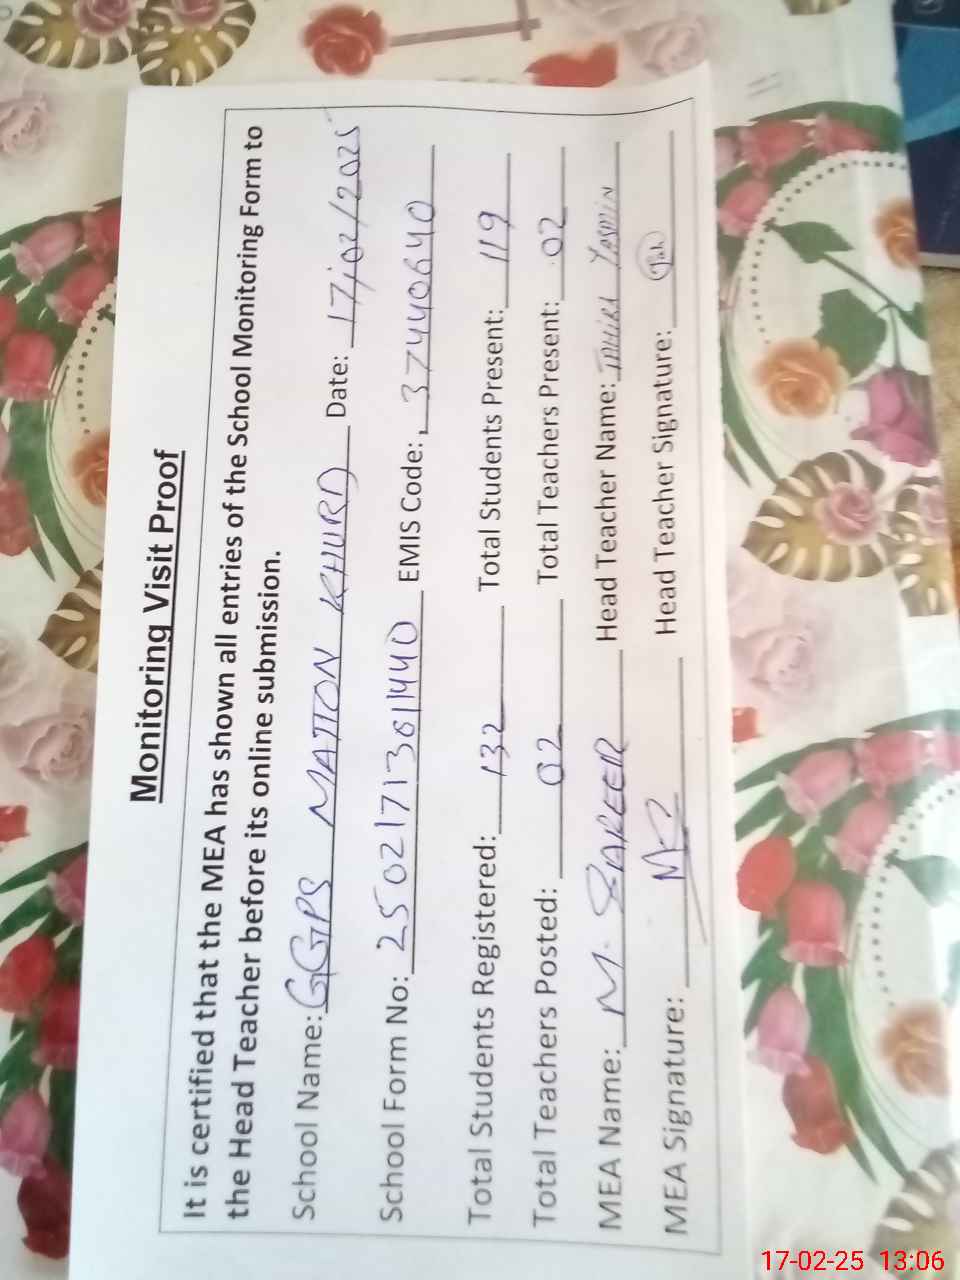 Monitoring Visit Proof
It is certified that the MEA has shown all entries of the School Monitoring Form to
the Head Teacher before its online submission.
School Name: GGPS MATTON KHURD Date: 17/02/2025
School Form No: 2502171361440 EMIS Code: 37440640
Total Students Registered: 132 Total Students Present: 119
Total Teachers Posted: 02 Total Teachers Present: 02
MEA Name: M. Head Teacher Name: YASMIN
MEA Signature: Head Teacher Signature:
17-02-25 13:06